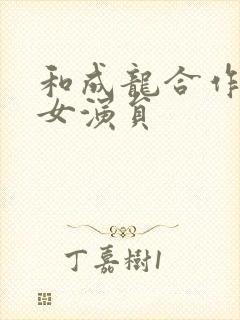 和成龍合作
女演員
丁嘉樹1